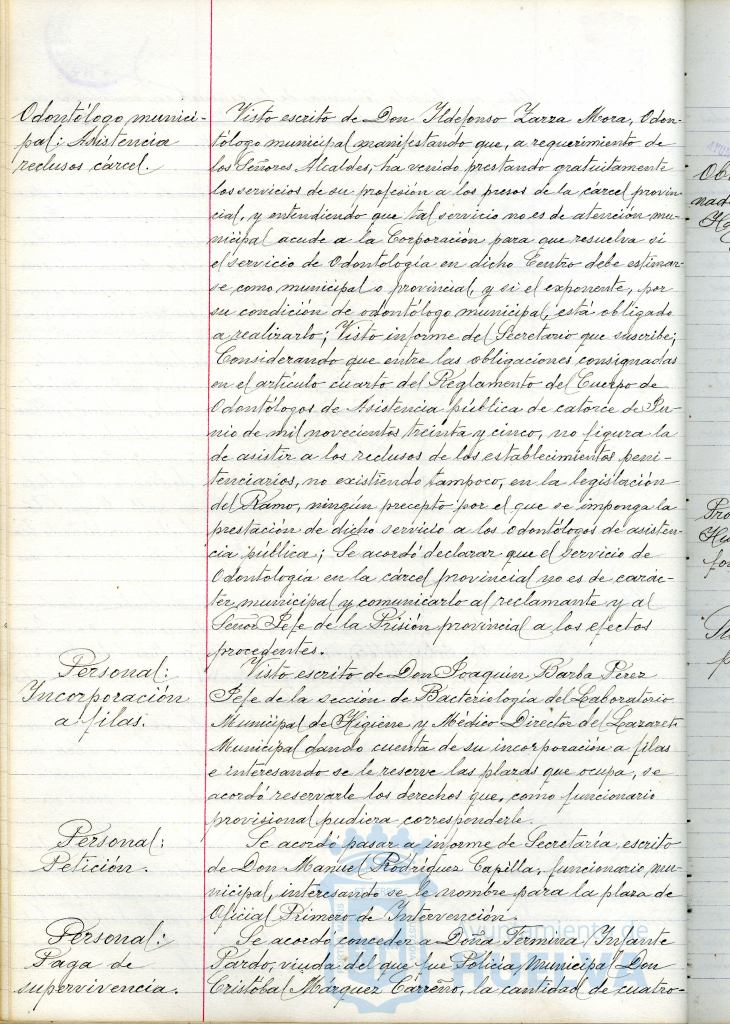 Odontólogo munici-
pal: Asistencia
reclusos cárcel.
Visto escrito de Don Ildefonso Zarza Mora, Odon-
tólogo municipal manifestando que, a requerimiento de
los Señores Alcaldes, ha venido prestando gratuitamente
los servicios de su profesión a los presos de la cárcel provin-
cial, y entendiendo que tal servicio no es de atención mu-
nicipal acude a la Corporación para que resuelva si
el servicio de Odontología en dicho Centro debe estimar-
se como municipal o provincial, y si el exponente, por
su condición de odontólogo municipal, está obligado
a realizarlo; Visto informe del Secretario que suscribe;
Considerando que entre las obligaciones consignadas
en el artículo cuarto del Reglamento del Cuerpo de
Odontólogos de Asistencia pública de catorce de Ju-
nio de mil novecientos treinta y cinco, no figura la
de asistir a los reclusos de los establecimientos peni-
tenciarios, no existiendo tampoco, en la legislación
del Ramo, ningún precepto por el que se imponga la
prestación de dicho servicio a los Odontólogos de asisten-
cia pública; Se acordó declarar que el servicio de
Odontología en la cárcel provincial no es de carác-
ter municipal y comunicarlo al reclamante y al
Señor Jefe de la Prisión provincial a los efectos
procedentes.
Personal:
Incorporación
a filas.
Visto escrito de Don Joaquín Barba Pérez
Jefe de la sección de Bacteriología del Laboratorio
Municipal de Higiene y Médico Director del Lazareto
Municipal dando cuenta de su incorporación a filas
e interesando se le reserve las plazas que ocupa, se
acordó reservarle los derechos que, como funcionario
provisional pudiera corresponderle.
Personal:
Petición.
Se acordó pasar a informe de Secretaría, escrito
de Don Manuel Rodríguez Capilla, funcionario mu-
nicipal, interesando se le nombre para la plaza de
Oficial Primero de Intervención.
Personal:
Paga de
supervivencia.
Se acordó conceder a Doña Fermina Infante
Pardo, viuda del que fue Policía Municipal Don
Cristóbal Márquez Carreño, la cantidad de cuatro-
Ayuntamiento de
HUELVA